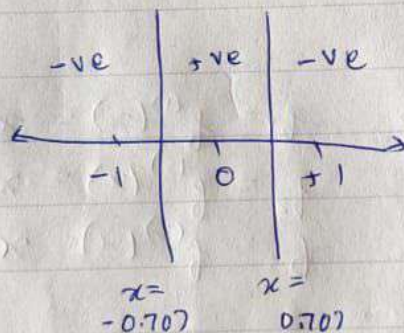 -ve +ve -ve
-1 0 +1
x= x=
-0.707 0.707